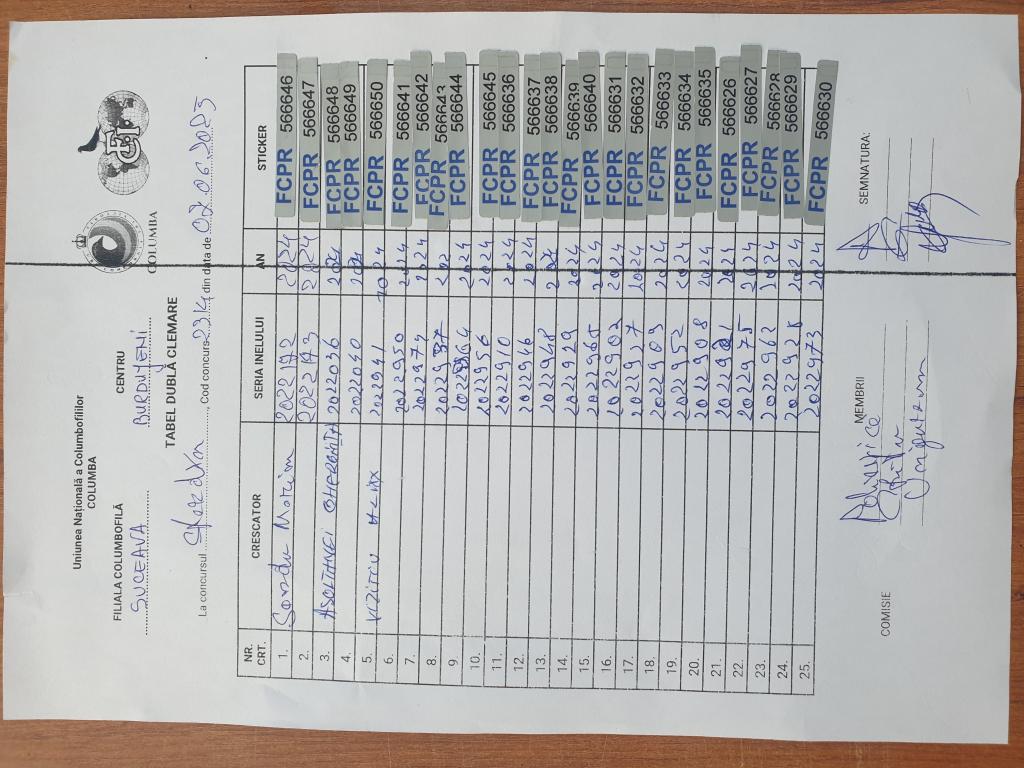 Uniunea Națională a Columbofililor
COLUMBA
COLUMBA
FILIALA COLUMBOFILĂ CENTRU
SUCEAVA BURDUJENI
TABEL DUBLĂ CLEMARE
La concursul, Cod concurs, din data de 02.06.2025
NR. CRT. CRESCATOR SERIA INELULUI AN STICKER
1. Sandu Marian 2022172 2024 FCPR 566646
2. 2022173 2024 FCPR 566647
3. ASOLTANEI GHERGHIȚĂ 2022036 2024 FCPR 566648
4. 2022040 2024 FCPR 566649
5. VIZITIU ALEX 2022941 2024 FCPR 566650
6. 2022950 2024 FCPR 566641
7. 2022974 2024 FCPR 566642
8. 2022937 202 FCPR 566643
9. 2024 FCPR 566644
10. 2022956 2024 FCPR 566645
11. 2022910 2024 FCPR 566636
12. 2022946 2024 FCPR 566637
13. 2022948 2024 FCPR 566638
14. 2022929 2024 FCPR 566639
15. 2022965 2024 FCPR 566640
16. 2022902 2024 FCPR 566631
17. 2022927 2024 FCPR 566632
18. 2022903 2024 FCPR 566633
19. 2022952 2024 FCPR 566634
20. 2022908 2024 FCPR 566635
21. 2024 FCPR 566626
22. 2022975 2024 FCPR 566627
23. 2022962 2024 FCPR 566628
24. 2022925 2024 FCPR 566629
25. 2022973 2024 FCPR 566630
COMISIE MEMBRII SEMNATURA: